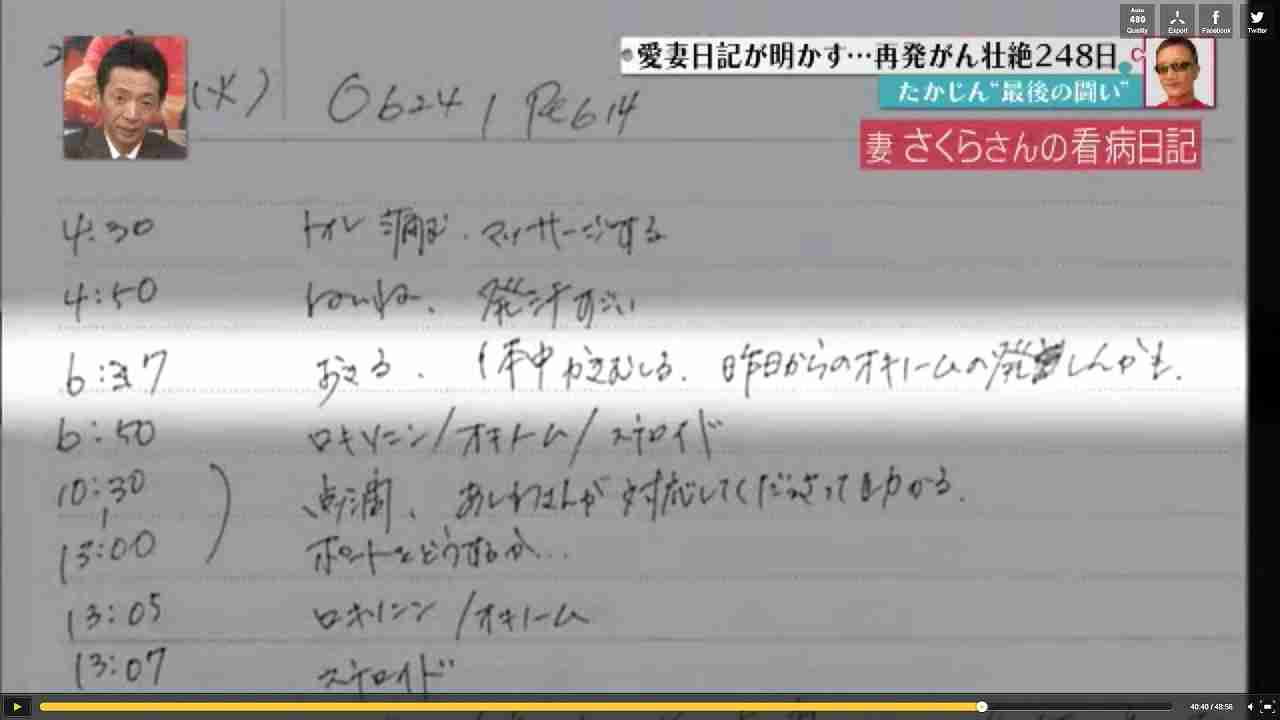 Auto
480
Quality
Export
Facebook
Twitter
愛妻日記が明かす…再発がん壮絶248日
たかじん“最後の闘い”
妻 さくらさんの看病日記
(火)
4:30 トイレ マッサージする
4:50 発汗すごい
6:37 おきる. 体中かきむしる. 昨日からのオキノームの発しんかも.
6:50 ロキソニン/オキノーム/ステロイド
10:30 点滴、 が対応してくださって助かる.
13:00 ポートをどうするか...
13:05 ロキソニン/オキノーム
13:07 ステロイド
40:40 / 48:56